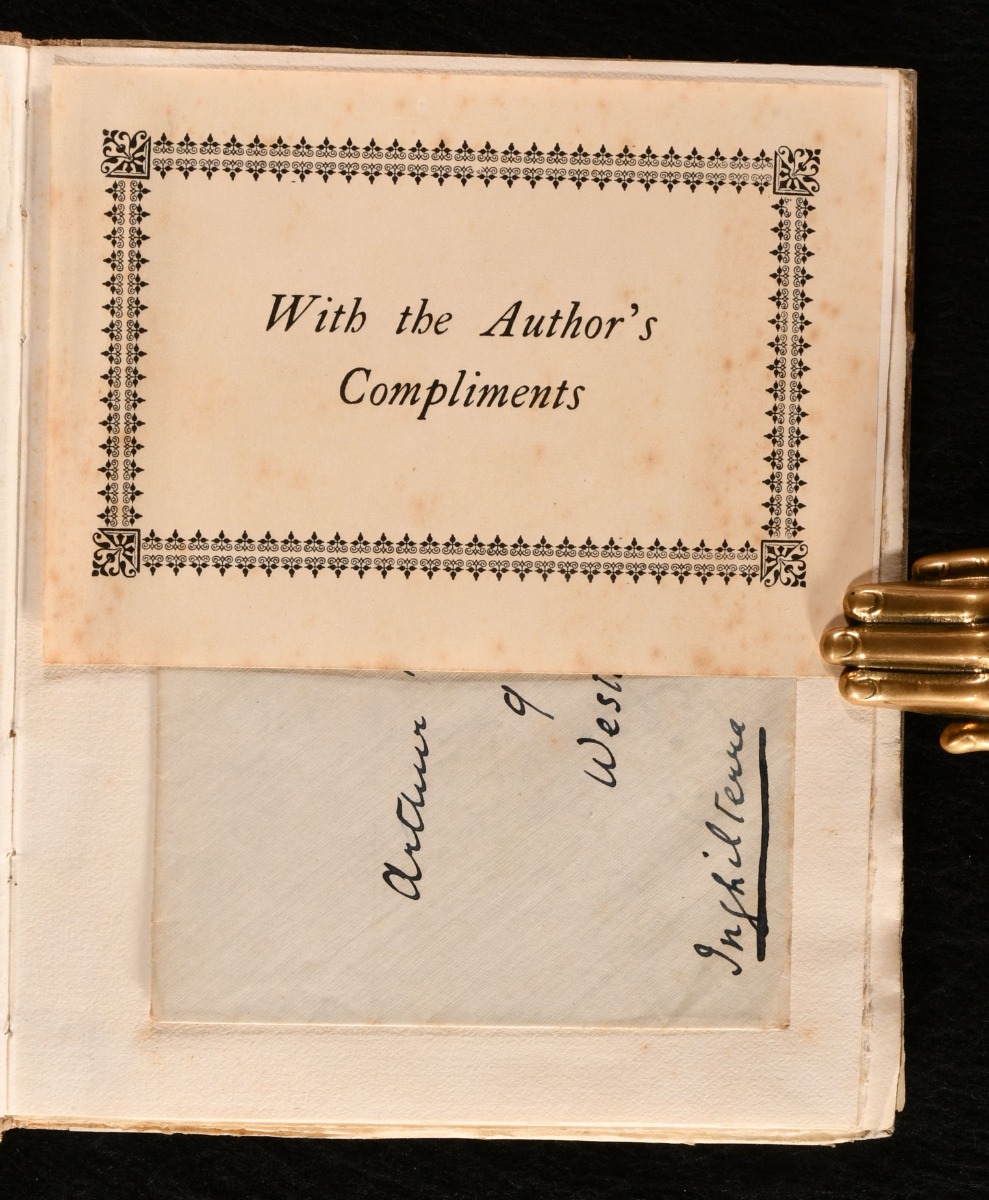 With the Author's
Compliments
Arthur
9
West
Inghilterra